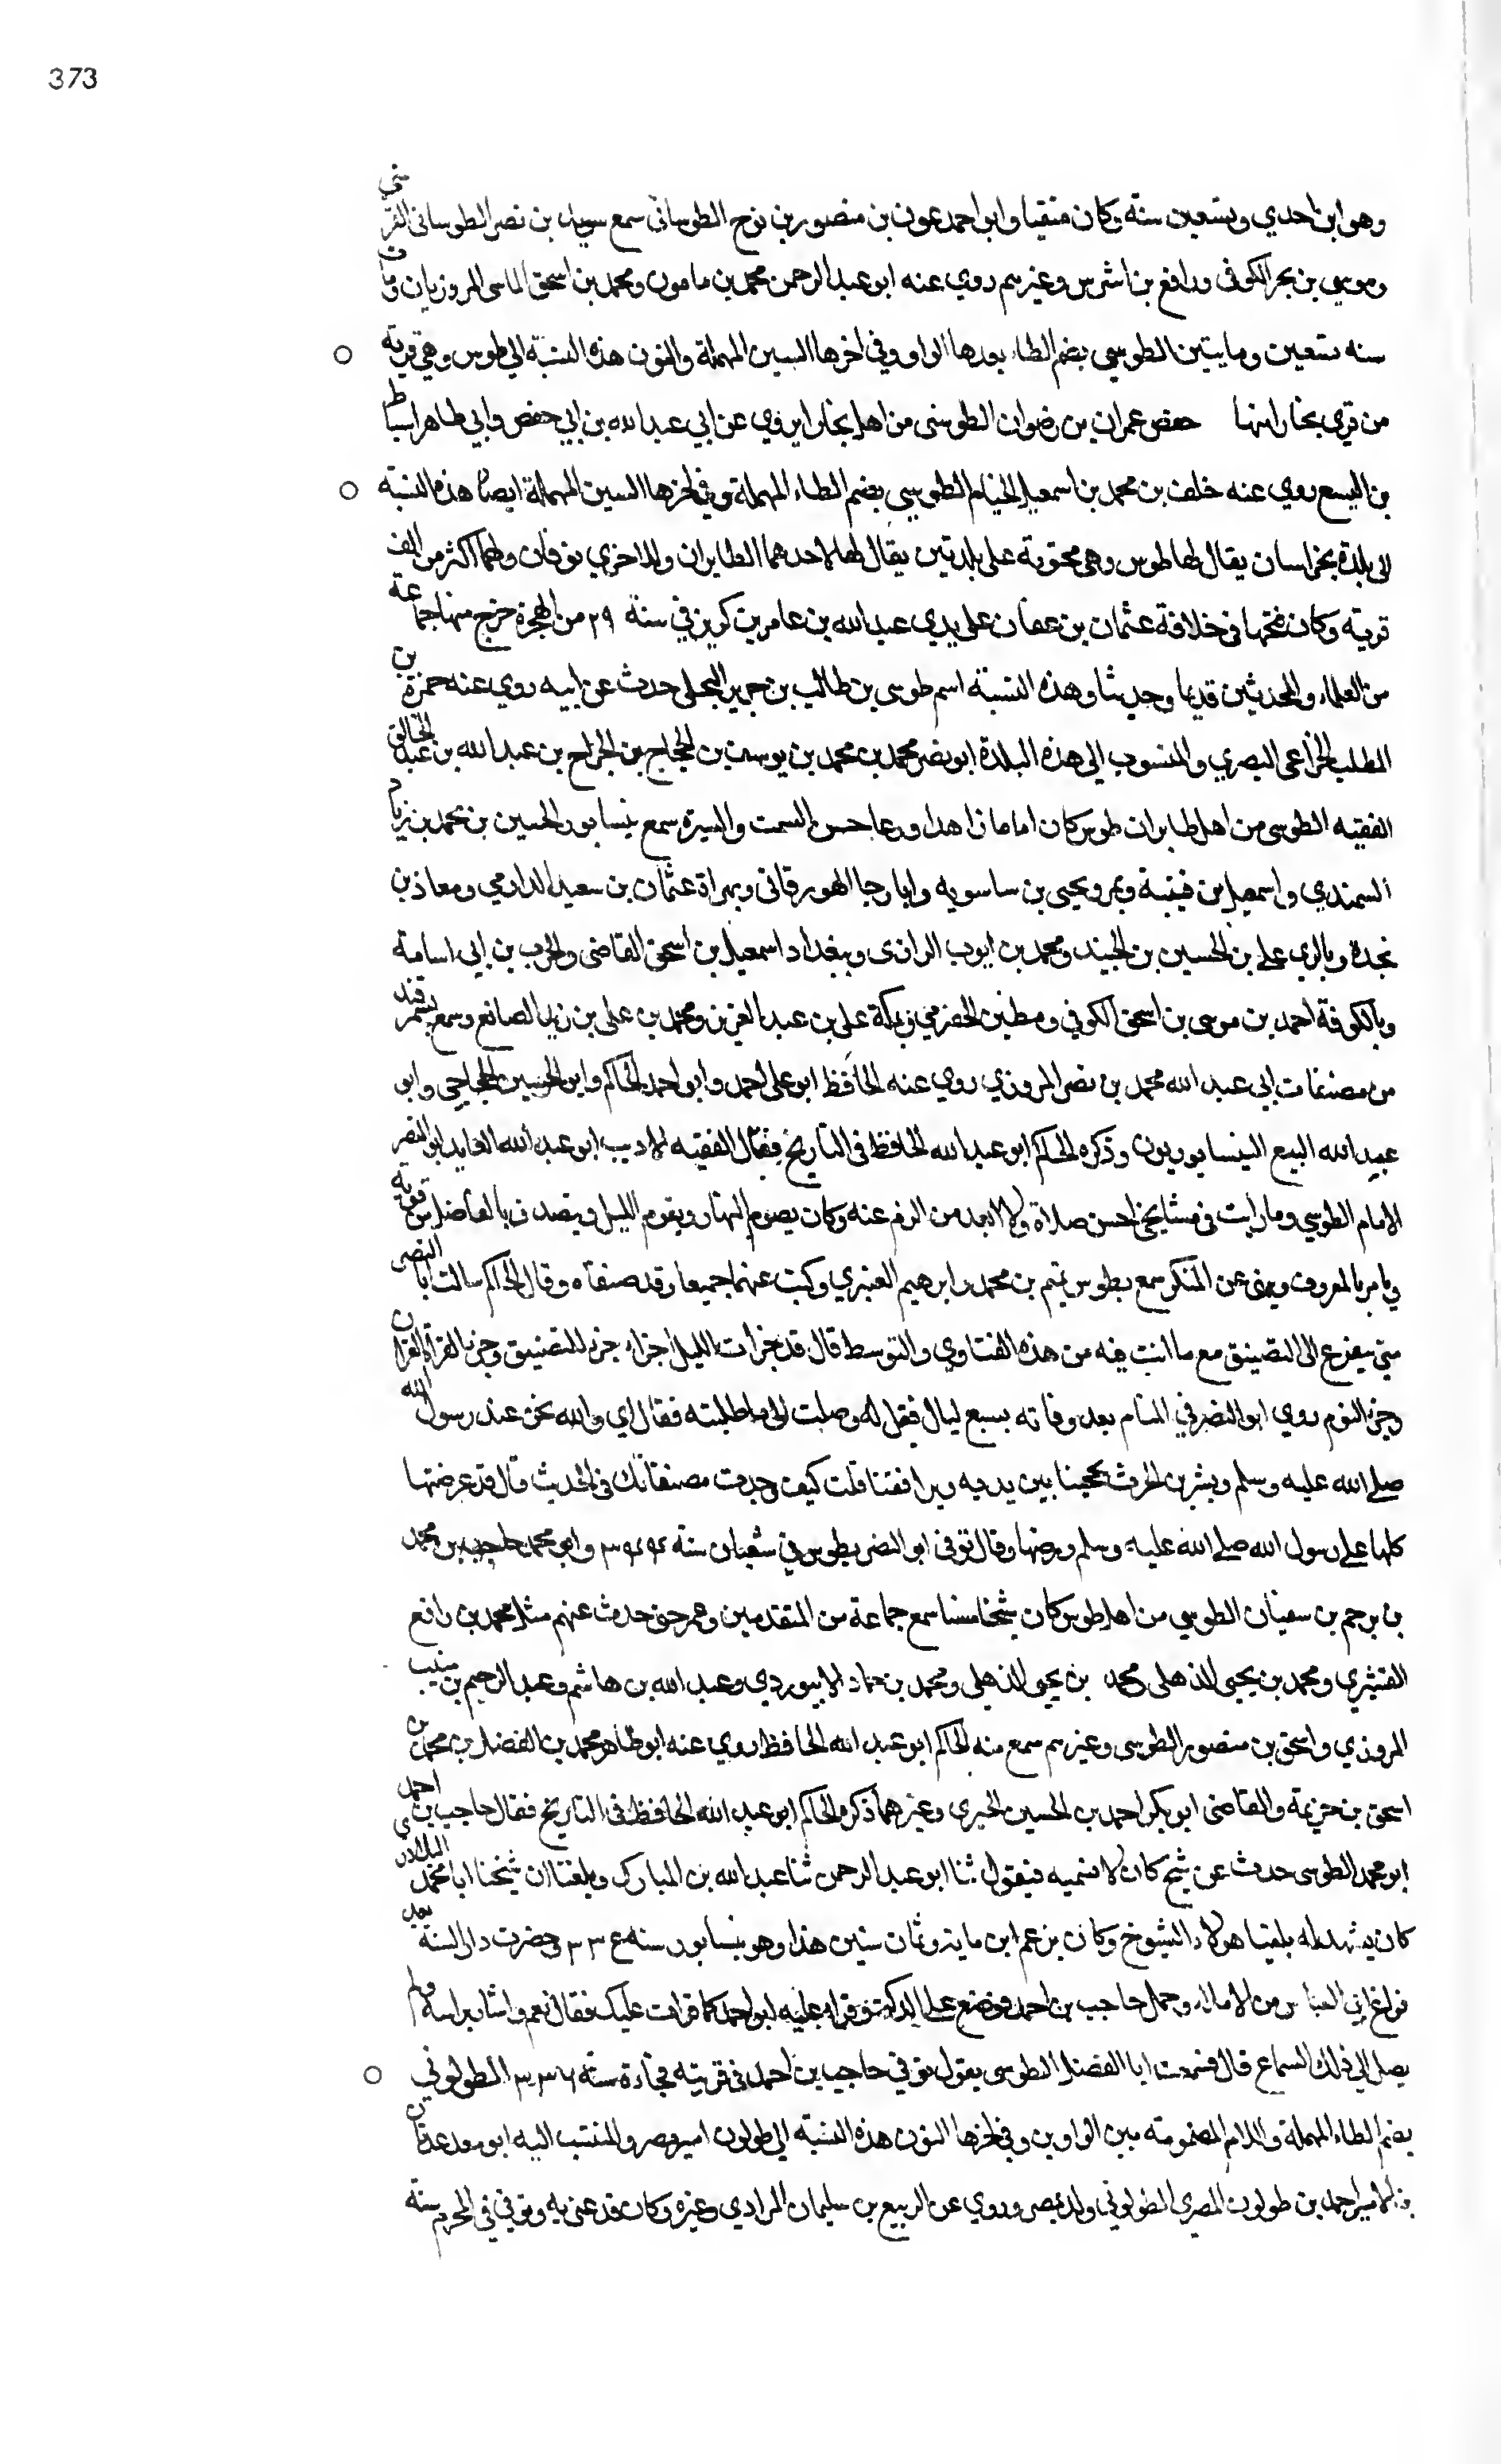 373
وهو ابن احدي وتسعين سنة وكان متقيا وابو احمد عون بن منصور بن نوح الطوساني سمع سويد بن نصر الطوساني القرشي
وموسى بن بحر الكوفي ورافع بن اشرس وغيرهم روي عنه ابو عبد الرحمن محمد بن مامون ومحمد بن اسحق المروزيان ومات
سنه تسعين ومايتين الطوسي بضم الطاء بعدها الواو وفي اخرها السين المهملة والنون هذه النسبة الي طوس وهي قرية
من قري بخارا منها حفص عمران بن رضوان الطوسني من اهل بخارا يروي عن ابي عبد الله بن ابي حفص وابي طاهر اسباط
بن اليسع روي عنه خلف بن محمد بن اسمعيل الخيام الطوسي بضم الطاء المهملة وفي اخرها السين المهملة ايضا هذه النسبة
الى بلدة بخراسان يقال لها طوس وهي محتوية على بلدتين يقال لها لاحدهما الطابران والاخري نوقان ولهما اكثر من الف
قرية وكان فتحها في خلافة عثمان بن عفان على يدي عبد الله بن عامر بن كريز في سنة ٢٩ من الهجرة خرج منها جماعة
من العلماء والمحدثين قديما وحديثا وهذه النسبة اسم طوسي بن طالب بن جرير البجلي حدث عن ابيه روي عنه حمزة بن
المطلب الخزاعي البصري والمنسوب الي هذه البلدة ابو نصر محمد بن محمد بن يوسف بن الحجاج بن الجراح بن عبد الله بن عبد الخالق
الفقيه الطوسي من اهل طابران طوس كان اماما زاهدا ورعا حسن السمت والسيرة سمع بنيسابور الحسين بن محمد بن زياد
السمندي واسمعيل بن قتيبة وبمرو يحيى بن ساسويه وابا رجا الهورقاني وبهراة عثمان بن سعيد الدارمي ومعاذ بن
نجدة وبالري علي بن الحسين بن الجنيد ومحمد بن ايوب الرازي وببغداد اسمعيل بن اسحق القاضي والحرب بن ابي اسامة
وبالكوفة احمد بن موسى بن اسحق الكوفي ومطين الحضرمي وبمكة علي بن عبد العزيز ومحمد بن علي بن زيد الصانع وسمع بسمرقند
من مصنفات ابي عبد الله محمد بن نصر المروزي روي عنه الحافظ ابو علي احمد وابو احمد الحاكم وابن الحسين الحجاجي وابو
عبد الله البيع النيسابوريون وذكره الحاكم ابو عبد الله الحافظ في التاريخ فقال الفقيه الاديب ابو عبد الله العابد ابو النضر
الامام الطوسي وما رايت في مشايخي احسن صلاة ولا ابعد من الرغم عنه وكان يصوم النهار ويقوم الليل ويتصدق بالفاضل من قوته
ويامر بالمعروف وينهى عن المنكر سمع بطوس تميم بن محمد وابرهيم العنبري وكتب عنهما جميعا وقد صنفاه وقال الحاكم سالت ابا النضر
متى يتفرغ الى التصنيف مع ما انت فيه من هذه الفتاوي والتوسط قال قد جزات الليل اجزاء جزء للتصنيف وجزء لقراة القران
وجزء النوم روي ابو النضر في المنام بعد وفاته بسبع ليال فقيل له وصلت الى ما طلبته فقال اي والله نحن عند رسول الله
صلى الله عليه وسلم وبشر بن الحرث يحجبنا بين يديه ويرافقنا قلت كيف وجدت مصنفاتك في الحديث قال قد عرضتها
كلها على رسول الله صلى الله عليه وسلم ورضيها وقال توفي ابو النضر بطوس في شعبان سنة ٣٤٤ وابو محمد حاجب بن محمد
بن يرجم بن سفيان الطوسي من اهل طوس كان شيخا مسنا سمع جماعة من المتقدمين وعمر حتى حدث عنهم مثل محمد بن رافع
القشيري ومحمد بن يحيى الذهلي محمد بن يحيى الذهلي ومحمد بن حماد الابيوردي وعبد الله بن هاشم وعبد الرحيم بن منيب
المروزي واسحق بن منصور الطوسي وغيرهم سمع منه الحاكم ابو عبد الله الحافظ روي عنه ابو طاهر محمد بن الفضل بن محمد بن
اسحق بن خزيمة والقاضي ابو بكر احمد بن الحسين الحيري وغيرهما ذكره الحاكم ابو عبد الله الحافظ في التاريخ فقال حاجب بن احمد
ابو محمد الطوسي حدث عن شيخ كان لا نسميه فنقول ثنا ابو عبد الرحمن ثنا عبد الله بن المبارك وبلغنا ان شيخنا ابا محمد
كان يشهد له بلقيا هولاء الشيوخ وكان يزعم ابن ماية وثمان سنين هذا وهو بنيسابور سنه وحضرت دار السنة بعد
فراغ ابي العباس من الاملاء وحمل حاجب بن احمد ووضع على الدكة وقراه عليه ابو احمد كما قرات عليك فقال نعم واشار براسه ولم
يصل الي ذلك السماع قال فسمعت ابا الفضل الطوسي يقول توفي حاجب بن احمد في قريته فجاءة سنة ٣٣٦ الطولوني
بضم الطاء المهملة واللام المضمومة بين الواوين وفي اخرها النون هذه النسبة الي طولون امير مصر والمنتسب اليه ابو معد عدنان
بن الامير احمد بن طولون المصري الطولوني ولد بمصر وروي عن الربيع بن سليمان المرادي وغيره وكان قد عني به وتوفي في المحرم سنة